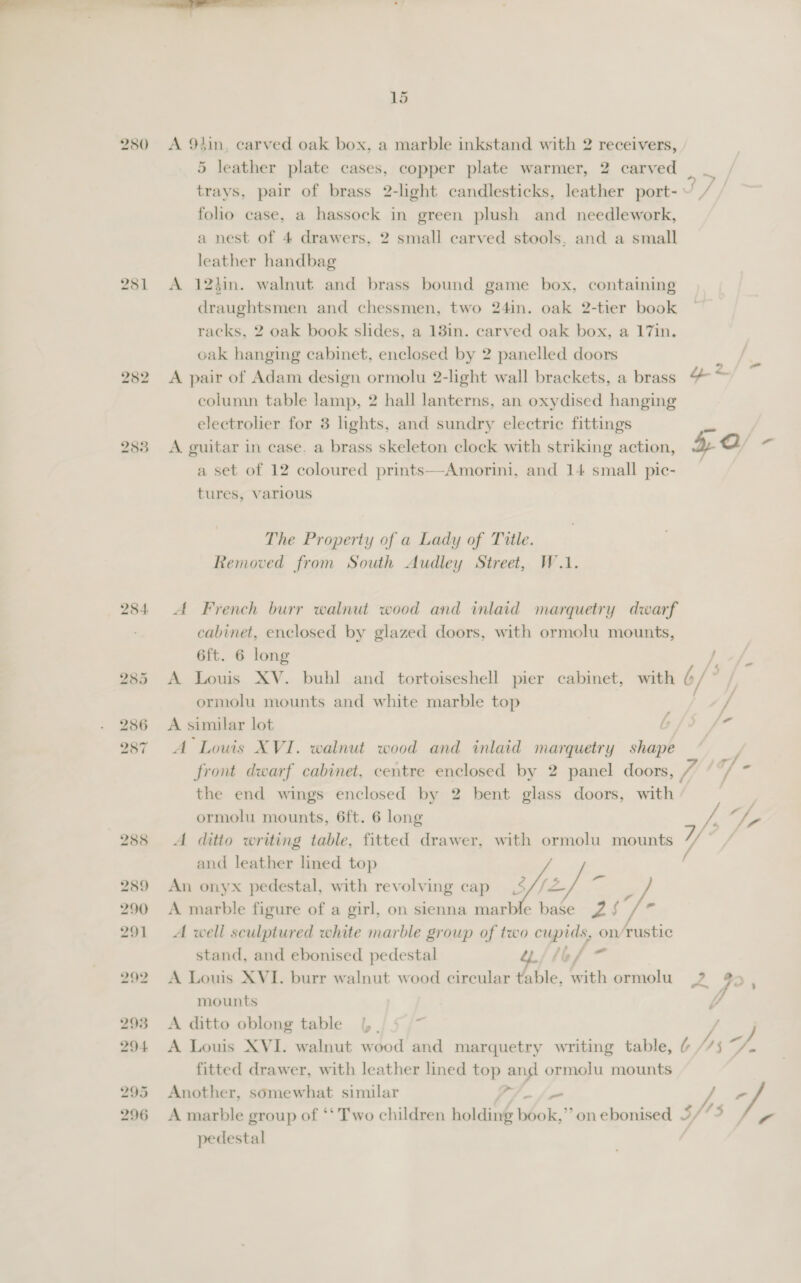 15
280 A 9½in. carved oak box, a marble inkstand with 2 receivers,
5 leather plate cases, copper plate warmer, 2 carved
trays, pair of brass 2-light candlesticks, leather port-
folio case, a hassock in green plush and needlework,
a nest of 4 drawers, 2 small carved stools, and a small
leather handbag
281 A 12½in. walnut and brass bound game box, containing
draughtsmen and chessmen, two 24in. oak 2-tier book
racks, 2 oak book slides, a 13in. carved oak box, a 17in.
oak hanging cabinet, enclosed by 2 panelled doors
282 A pair of Adam design ormolu 2-light wall brackets, a brass
column table lamp, 2 hall lanterns, an oxydised hanging
electrolier for 3 lights, and sundry electric fittings
283 A guitar in case, a brass skeleton clock with striking action,
a set of 12 coloured prints—Amorini, and 14 small pic-
tures, various
The Property of a Lady of Title.
Removed from South Audley Street, W.1.
284 A French burr walnut wood and inlaid marquetry dwarf
cabinet, enclosed by glazed doors, with ormolu mounts,
6ft. 6 long
285 A Louis XV. buhl and tortoiseshell pier cabinet, with
ormolu mounts and white marble top
286 A similar lot
287 A Louis XVI. walnut wood and inlaid marquetry shape
front dwarf cabinet, centre enclosed by 2 panel doors,
the end wings enclosed by 2 bent glass doors, with
ormolu mounts, 6ft. 6 long
288 A ditto writing table, fitted drawer, with ormolu mounts
and leather lined top
289 An onyx pedestal, with revolving cap
290 A marble figure of a girl, on sienna marble base
291 A well sculptured white marble group of two cupids, on rustic
stand, and ebonised pedestal
292 A Louis XVI. burr walnut wood circular table, with ormolu
mounts
293 A ditto oblong table
294 A Louis XVI. walnut wood and marquetry writing table,
fitted drawer, with leather lined top and ormolu mounts
295 Another, somewhat similar
296 A marble group of “Two children holding book,” on ebonised
pedestal